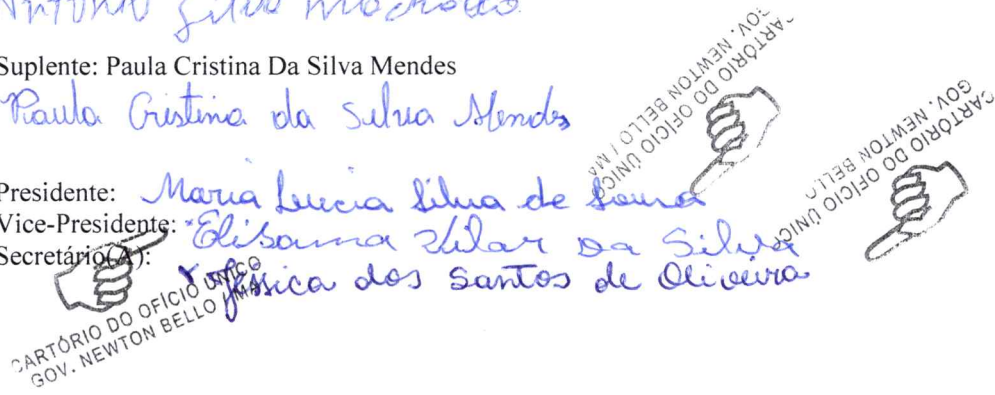 Antonio Silva Machado
Suplente: Paula Cristina Da Silva Mendes
Paula Cristina da Silva Mendes
CARTÓRIO DO OFÍCIO ÚNICO
GOV. NEWTON BELLO / MA
CARTÓRIO DO OFÍCIO ÚNICO
GOV. NEWTON BELLO
Presidente: Maria Lucia Silva de Sousa
Vice-Presidente: Elisama Vilar Da Silva
Secretário(A): Jéssica dos Santos de Oliveira
CARTÓRIO DO OFÍCIO ÚNICO
GOV. NEWTON BELLO / MA